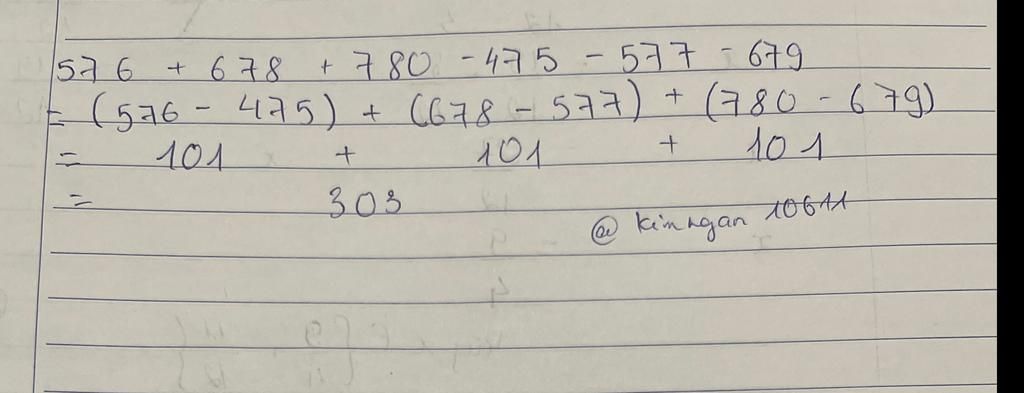 576 + 678 + 780 - 475 - 577 - 679
= (576 - 475) + (678 - 577) + (780 - 679)
= 101 + 101 + 101
= 303
@ kimngan 10611